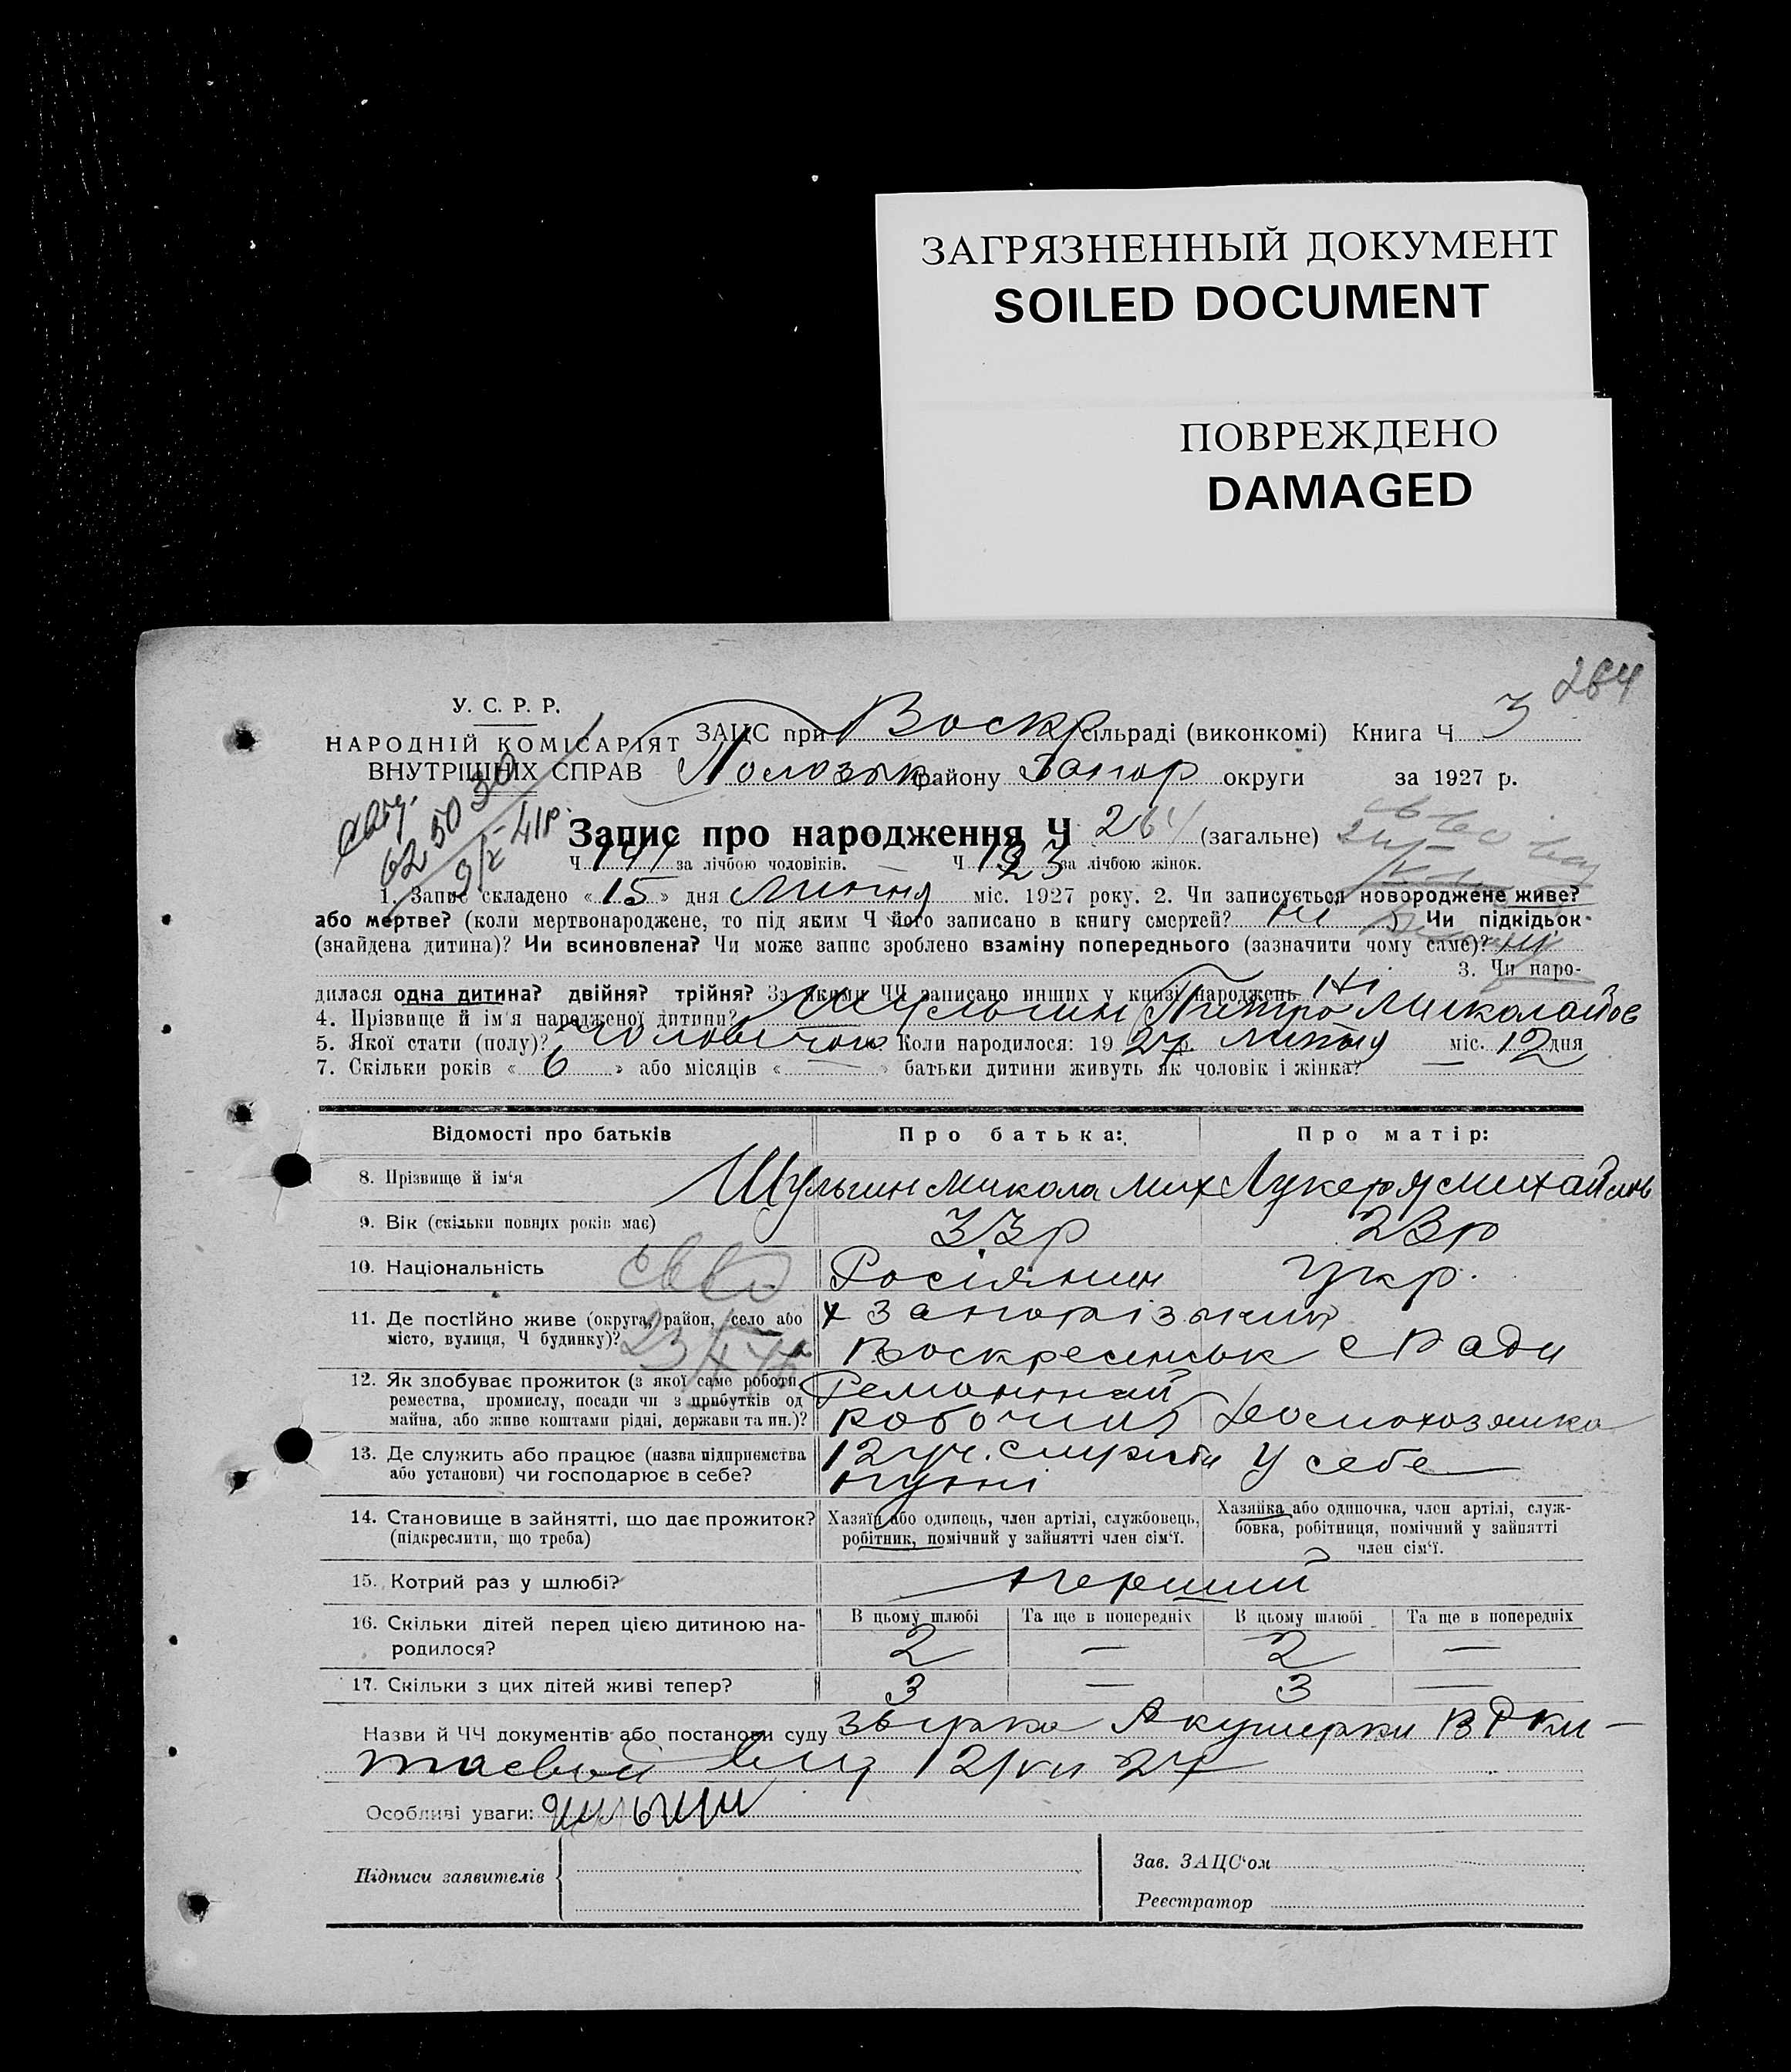 ЗАГРЯЗНЕННЫЙ ДОКУМЕНТ
SOILED DOCUMENT
ПОВРЕЖДЕНО
DAMAGED
264
У. С. Р. Р.
НАРОДНІЙ КОМІСАРІЯТ
ВНУТРІШНІХ СПРАВ
ЗАЦС при Воскр сільраді (виконкомі) Книга Ч 3
району Запор округи за 1927 р.
62 50 30
Запис про народження Ч 264 (загальне)
Ч 141 за лічбою чоловіків. Ч 123 за лічбою жінок.
1. Запис складено «15» дня липня міс. 1927 року. 2. Чи записується новороджене живе?
або мертве? (коли мертвонароджене, то під яким Ч його записано в книгу смертей? ні Чи підкідьок
(знайдена дитина)? Чи всиновлена? Чи може запис зроблено взаміну попереднього (зазначити чому саме)? ні
3. Чи наро-
дилася одна дитина? двійня? трійня? За якими ЧЧ записано инших у книзі народжень Ні
4. Прізвище й ім'я народженої дитини? Шульгин Питро Миколайов
5. Якої стати (полу)? Чоловічою Коли народилося: 1927 р. липня міс. 12 дня
7. Скільки років «6» або місяців «—» батьки дитини живуть як чоловік і жінка? —
Відомості про батьків Про батька: Про матір:
8. Прізвище й ім'я Шульгин Микола Мих Лукеря Михайлов
9. Вік (скільки повних років має) 33р 23р
10. Національність Росіянин Укр.
11. Де постійно живе (округа, район, село або
місто, вулиця, Ч будинку)?
Запорізький
Воскресенськ с Ради
12. Як здобуває прожиток (з якої саме роботи,
ремества, промислу, посади чи з прибутків од
майна, або живе коштами рідні, держави та ин.)?
Ремонтний
робочий Домохозяика
13. Де служить або працює (назва підприємства
або установи) чи господарює в себе?
12 уч. У себе
14. Становище в зайнятті, що дає прожиток?
(підкреслити, що треба)
Хазяїн або одинець, член артілі, службовець,
робітник, помічний у зайнятті член сім'ї.
Хазяйка або одиночка, член артілі, служ-
бовка, робітниця, помічний у зайнятті
член сім'ї.
15. Котрий раз у шлюбі? перший
16. Скільки дітей перед цією дитиною на-
родилося?
В цьому шлюбі Та ще в попередніх В цьому шлюбі Та ще в попередніх
2 — 2 —
17. Скільки з цих дітей живі тепер? 3 — 3 —
Назви й ЧЧ документів або постанови суду Акушерки
12/VII 27
Особливі уваги:
Підписи заявителів
Зав. ЗАЦС'ом
Реєстратор